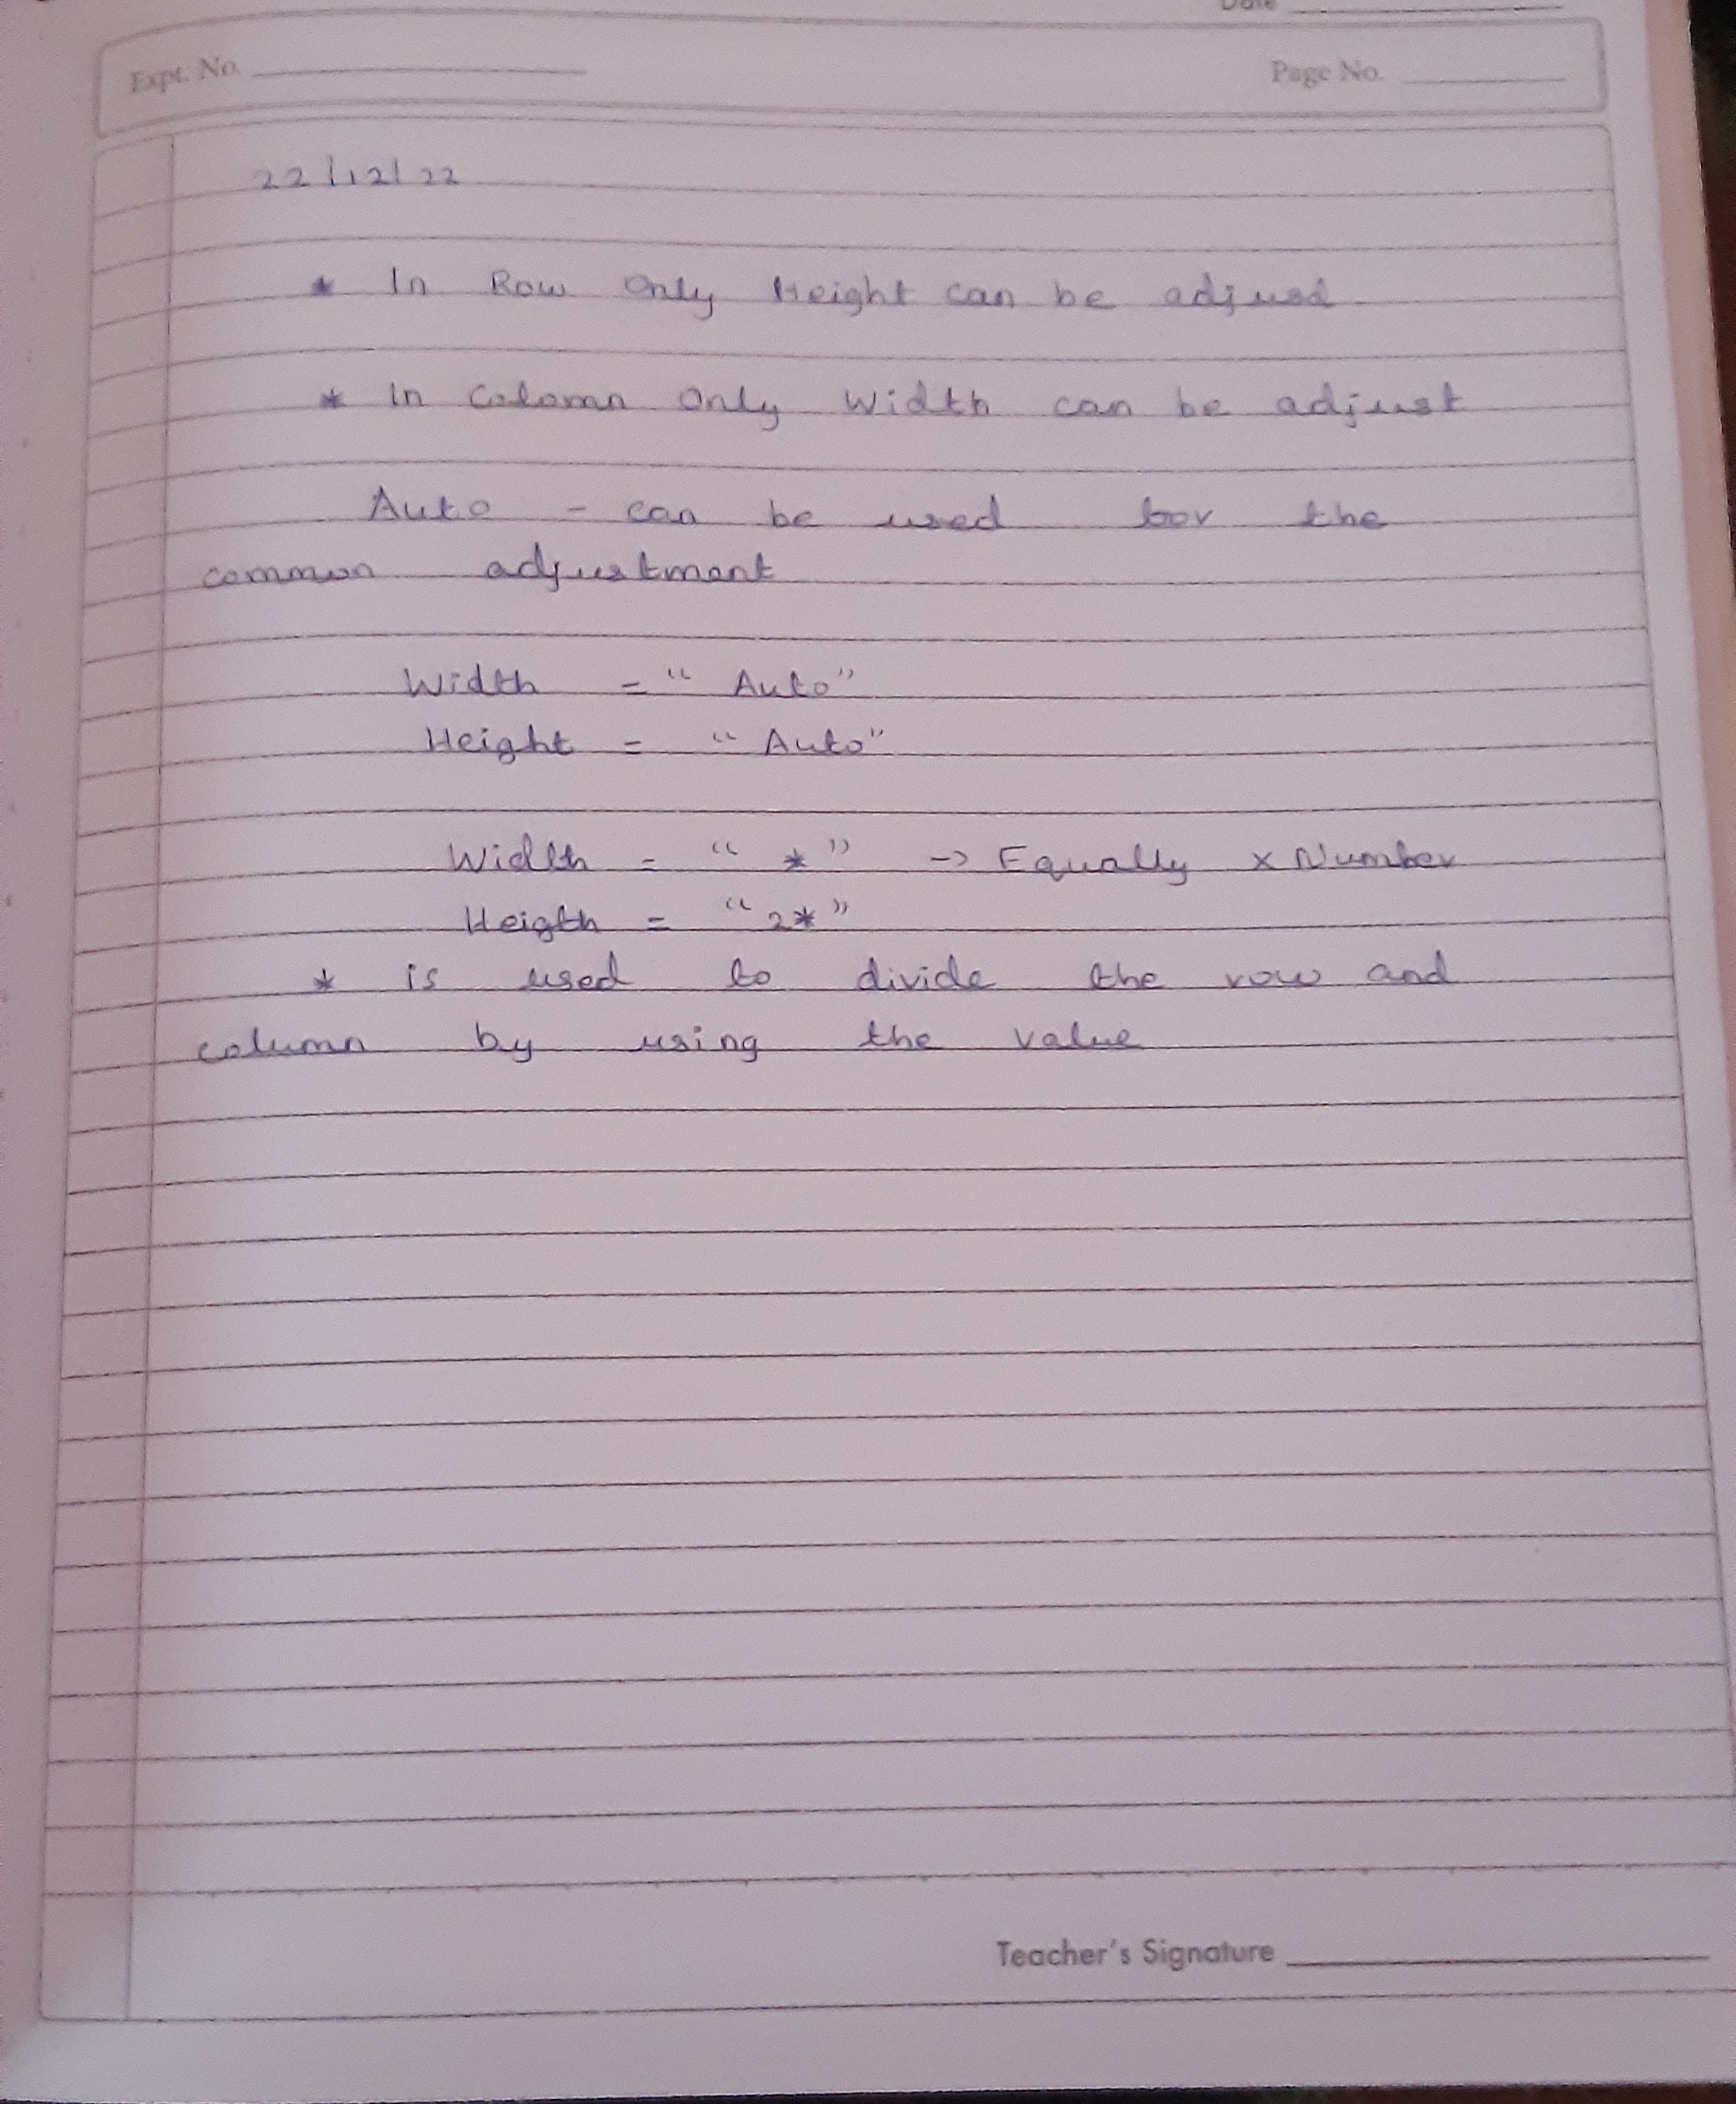 Date
Expt. No.
Page No.
22/12/22
* In Row Only Height can be adjusd
* In Colomn Only Width can be adjust
Auto - can be used for the
common adjustment
Width = " Auto"
Height = " Auto"
Width = " * " -> Equally x Number
Heigth = " 2* "
* is used to divide the row and
column by using the value
Teacher's Signature